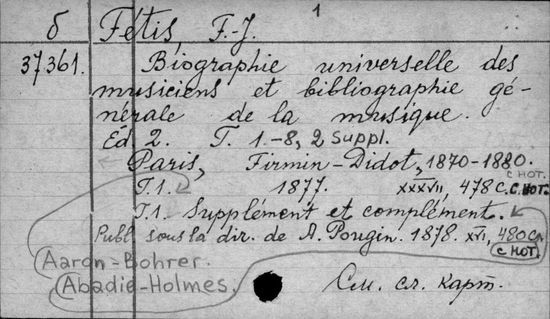 1
б Fétis, F.-J.
37361. Biographie universelle des
musiciens et bibliographie gé-
nérale de la musique.
Éd 2. T. 1.-8, 2 suppl.
Paris, Firmin-Didot, 1870-1880.
с нот.
T.1. 1877. XXXVII, 478 с. с нот.
T.1. Supplément et complément.
Publ. sous la dir. de A. Pougin. 1878. XVI, 480 с.
с нот.
Aaron-Bohrer.
Abadie-Holmes.
См. сл. карт.